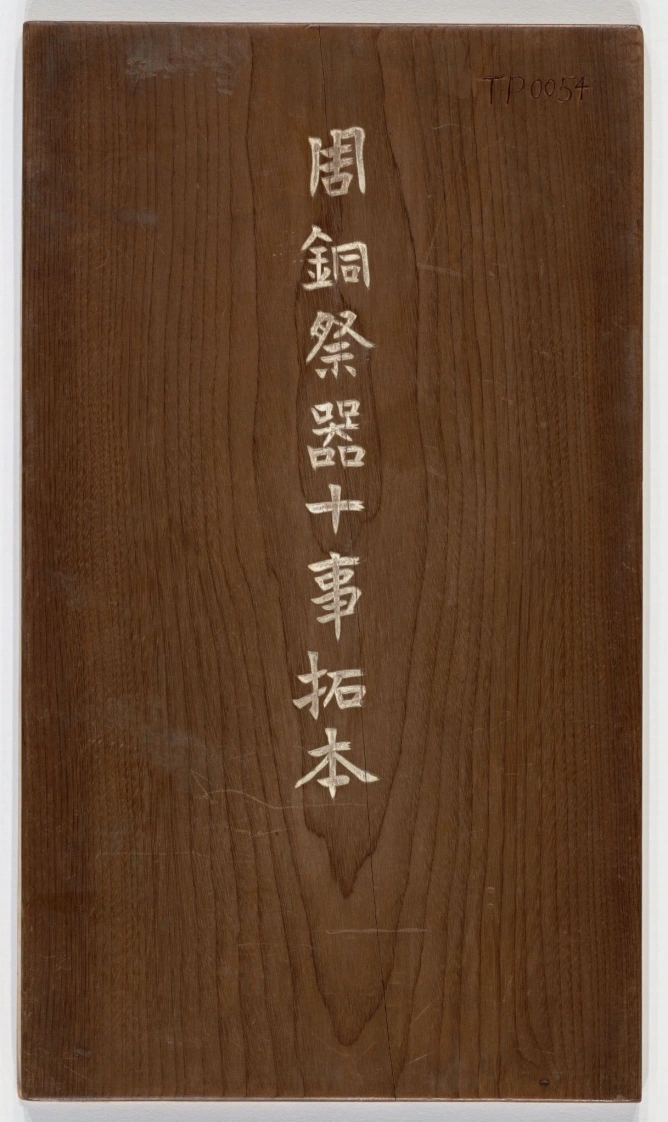 TP0054
周銅祭器十事拓本